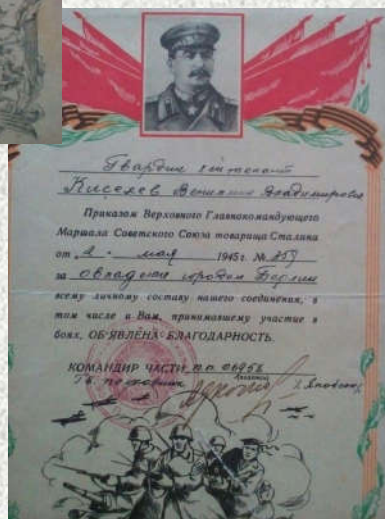 Гвардии лейтенант
Киселев Вениамин Владимирович
Приказом Верховного Главнокомандующего
Маршала Советского Союза товарища Сталина
от „2“ мая 1945 г. № 359
за овладение городом Берлин
всему личному составу нашего соединения, в
том числе и Вам, принимавшему участие в
боях, ОБ'ЯВЛЕНА БЛАГОДАРНОСТЬ.
КОМАНДИР ЧАСТИ п.п. 06956
Гв. полковник